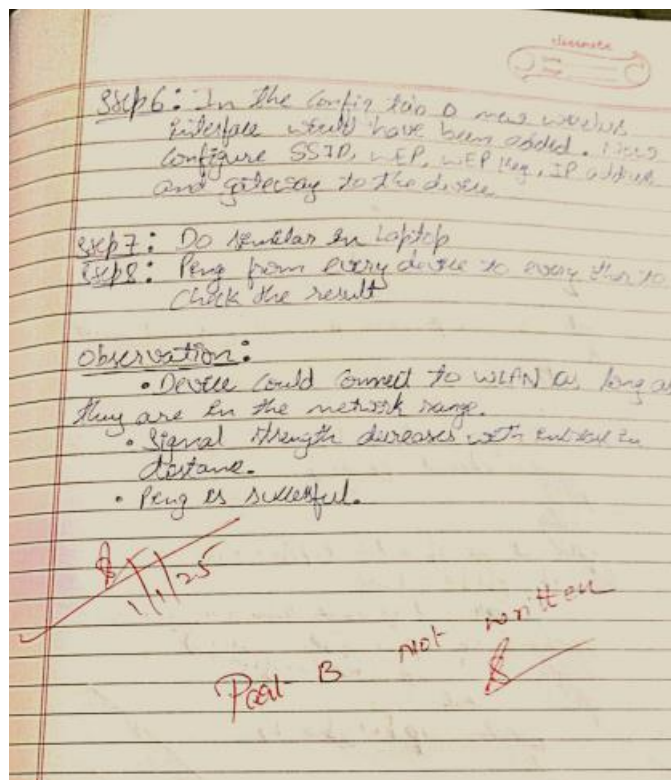 classmate
Step 6: In the config tab a new wireless
interface would have been added. Now
configure SSID, WEP, WEP Key, IP address
and gateway to the device
Step 7: Do similar in Laptop
Step 8: Ping from every device to every
check the result
Observation:
• Device could connect to WLAN as long as
they are in the network range.
• Signal strength decreases with in
distance.
• Ping is successful.
1/1/25
Part-B not written